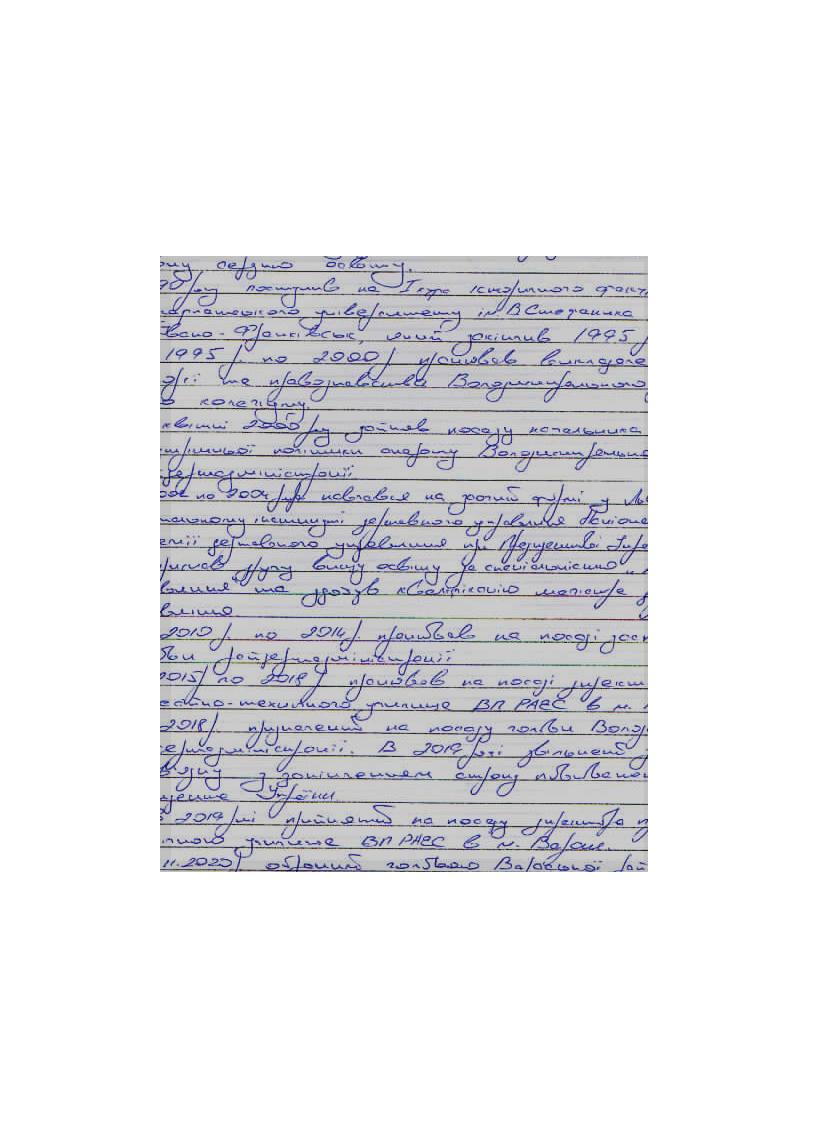 ому середню освіту.
90 року поступив на І курс історичного факу
карпатського університету ім. В Стефаника
Івано-Франківськ, який закінчив 1995 р
1995 р. по 2000 р працював викладаче
орії та правознавства Володимирецького
о колегіуму.
квітні 2000 року зайняв посаду начальника
утрішньої політики апарату Володимирецько
держадміністрації
2002 по 2004 рр навчався на заочній формі у Льв
нальному інституті державного управління Націона
емії державного управління при Президентові Укра
римав другу вищу освіту за спеціальністю „
вління та здобув кваліфікацію магістра д
вління.
2010 р. по 2014 р. працював на посаді заст
ови райдержадміністрації
2015 р по 2018 р працював на посаді директ
есійно-технічного училища ВП РАЕС в м.
2018 р. призначений на посаду голови Волод
держадміністрації. В 2019 році звільнений з
в'язку з закінченням строку повноважен
зидента України.
В 2019 році прийнятий на посаду директора п
ічного училища ВП РАЕС в м. Вараш.
11.2020 р обраний головою Вараської рай